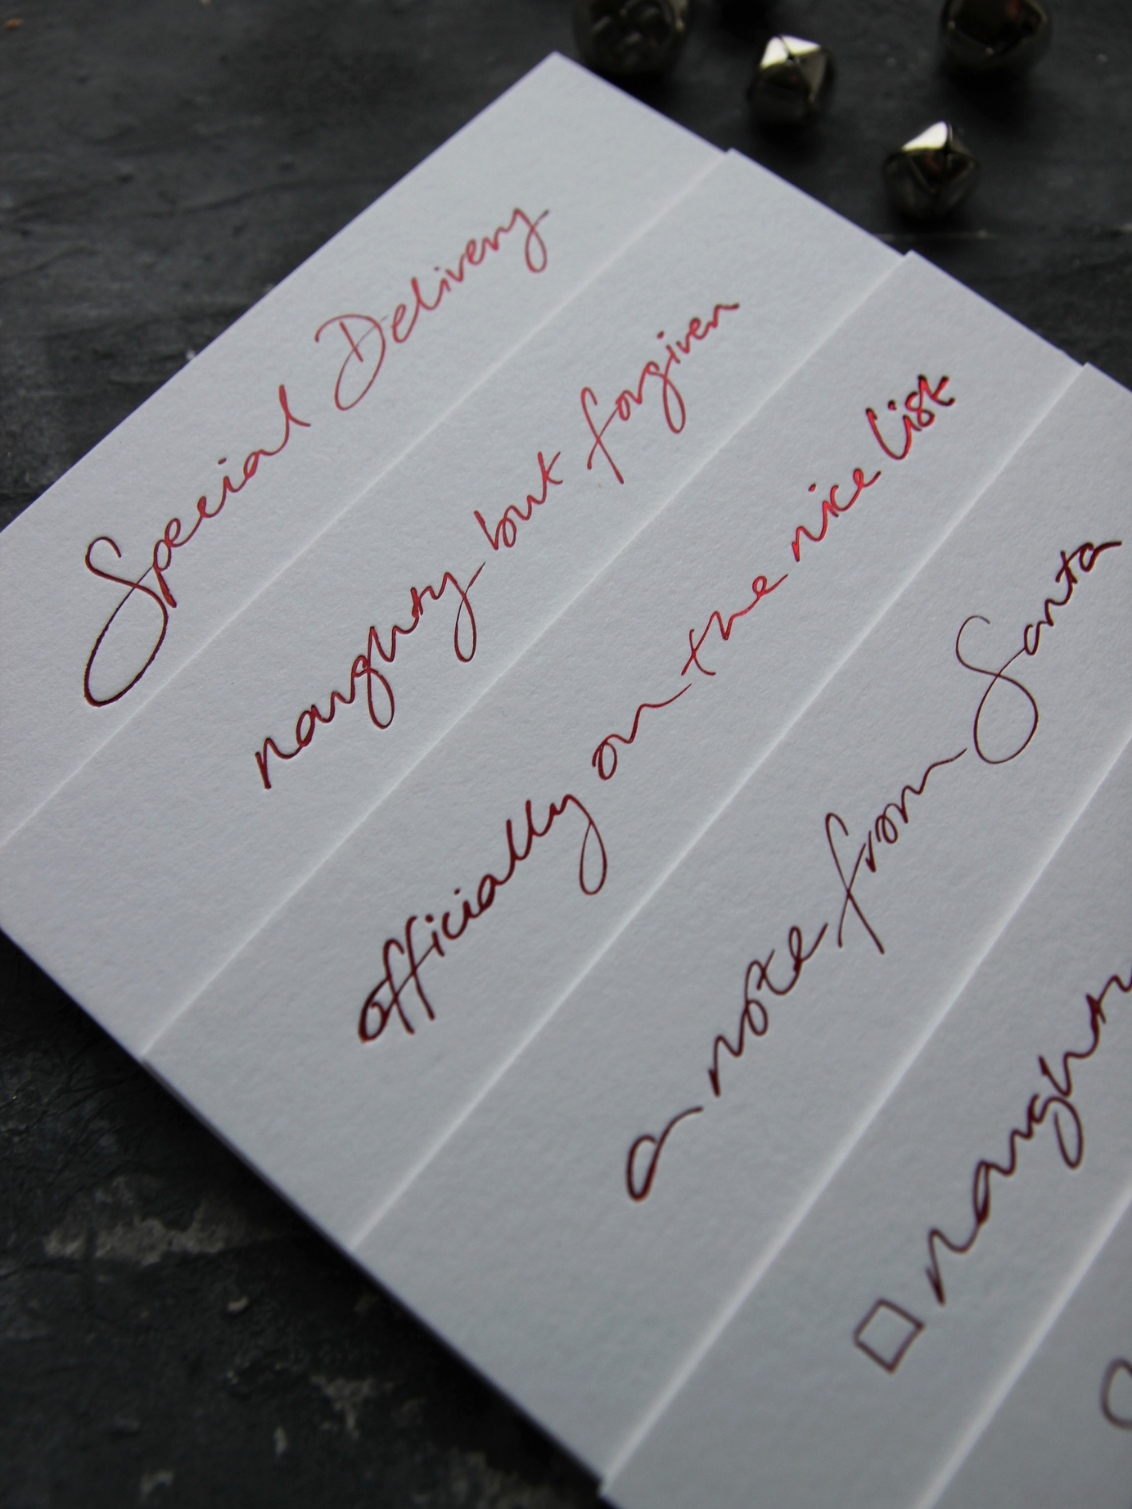 Special Delivery
naughty but forgiven
officially on the nice list
a note from Santa